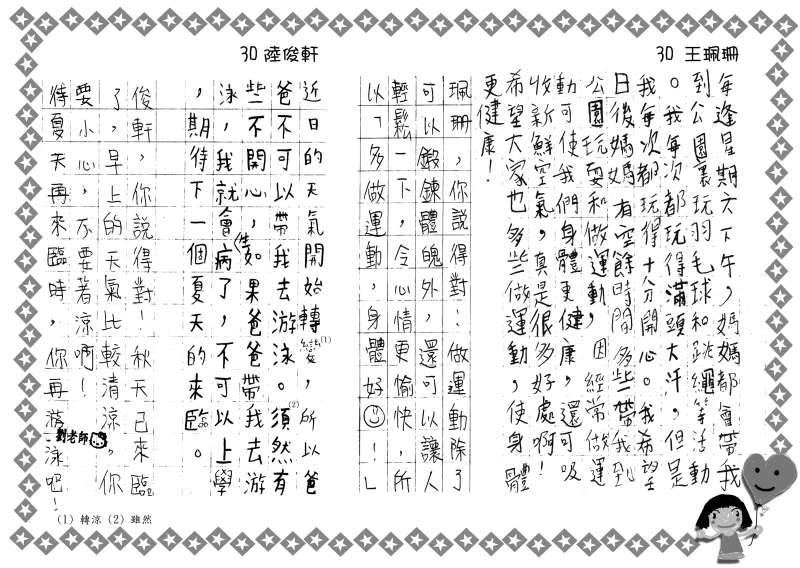 30 王珮珊
每逢星期六下午，媽媽都會帶我
到公園裏玩羽毛球和跳繩等活動
。我每次都玩得滿頭大汗，但是
我每次都玩得十分開心。我希望
日後媽媽有空餘時間多些帶我到
公園玩耍和做運動，因經常做運
動可使我們身體更健康，還可吸
收新鮮空氣，真是很多好處啊！
希望大家也多些做運動，使身體
更健康！
珮珊，你說得對！做運動除了
可以鍛鍊體魄外，還可以讓人
輕鬆一下，令心情更愉快，所
以「多做運動，身體好☺！」
30 陸俊軒
近日的天氣開始轉變(1)，所以爸
爸不可以帶我去游泳。須(2)然有
些不開心，如果爸爸帶我去游
泳，我就會病了，不可以上學
，期待下一個夏天的來臨。
俊軒，你說得對！秋天已來臨
了，早上的天氣比較清涼。你
要小心，不要著涼啊！
待夏天再來臨時，你再游泳吧！
劉老師
(1) 轉涼 (2) 雖然